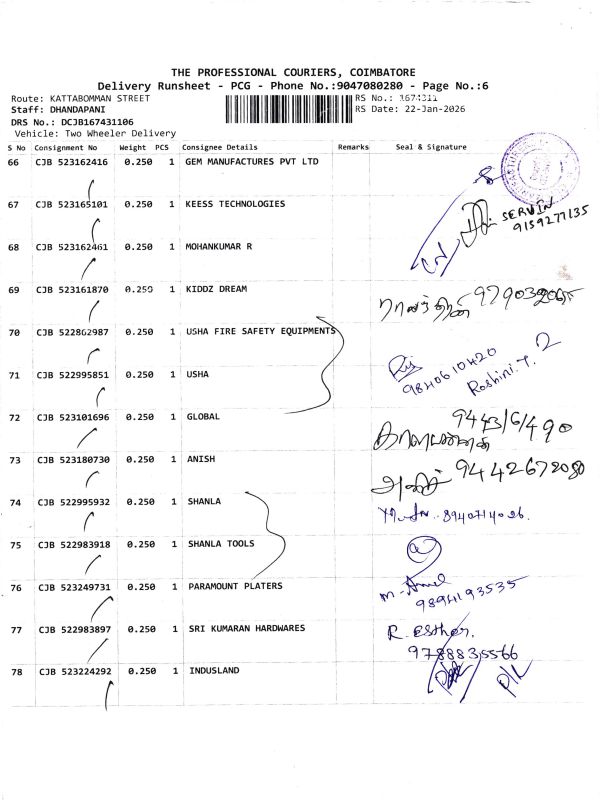 THE PROFESSIONAL COURIERS, COIMBATORE
Delivery Runsheet - PCG - Phone No.:9047080280 - Page No.:6
Route: KATTABOMMAN STREET
RS No.: 1674311
Staff: DHANDAPANI
RS Date: 22-Jan-2026
DRS No.: DCJB167431106
Vehicle: Two Wheeler Delivery
S No Consignment No Weight PCS Consignee Details Remarks Seal & Signature
66 CJB 523162416 0.250 1 GEM MANUFACTURES PVT LTD
67 CJB 523165101 0.250 1 KEESS TECHNOLOGIES SERVIN
9159277135
68 CJB 523162461 0.250 1 MOHANKUMAR R
69 CJB 523161870 0.250 1 KIDDZ DREAM
70 CJB 522862987 0.250 1 USHA FIRE SAFETY EQUIPMENTS
71 CJB 522995851 0.250 1 USHA 9840610420 Roshini.T. 2
72 CJB 523101696 0.250 1 GLOBAL
73 CJB 523180730 0.250 1 ANISH
74 CJB 522995932 0.250 1 SHANLA
8940714026.
75 CJB 522983918 0.250 1 SHANLA TOOLS
76 CJB 523249731 0.250 1 PARAMOUNT PLATERS
9894193535
77 CJB 522983897 0.250 1 SRI KUMARAN HARDWARES R. Esther.
9788835566
78 CJB 523224292 0.250 1 INDUSLAND